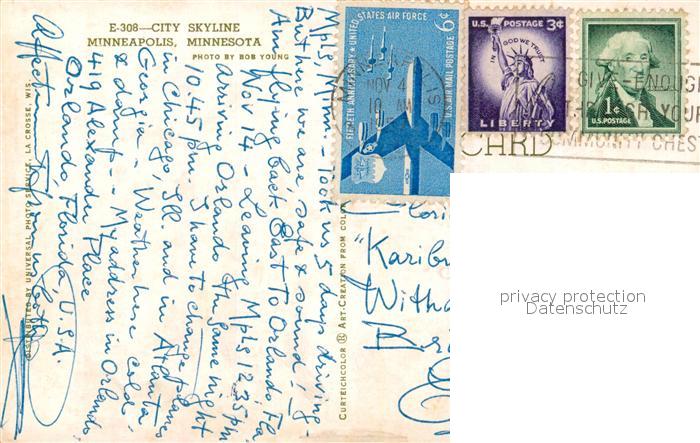 E-308—CITY SKYLINE
MINNEAPOLIS, MINNESOTA
PHOTO BY BOB YOUNG
Mpls, Took us 5 days driving -
But here we are safe & sound! I
Am flying back East To Orlando, Fla
Nov 14 - Leaving Mpls 12:35 pm
arriving Orlando the same night
10:45 pm. I have to change planes
in Chicago, Ill. and in Atlanta
Georgia. Weather here cold
& damp - My address in Orlando:
419 Alexander Place
Orlando, Florida, U.S.A.
Affect
DISTRIBUTED BY UNIVERSAL PHOTO SERVICE, LA CROSSE, WIS.
CURTEICHCOLOR ® ART-CREATION FROM COL
FIFTIETH ANNIVERSARY • UNITED STATES AIR FORCE
6¢
U.S. AIR MAIL POSTAGE
NOV 4
U.S. POSTAGE 3¢
IN GOD WE TRUST
LIBERTY
1¢
U.S. POSTAGE
GIVE ENOUGH
YOUR
COMMUNITY CHEST
CARD
"Karibu
privacy protection
Datenschutz